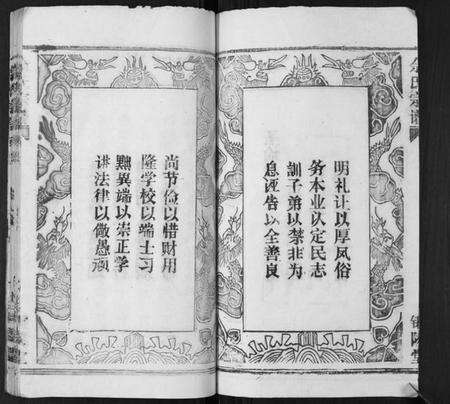 明礼让以厚风俗
务本业以定民志
訓子弟以禁非为
息诬告以全善良
尚节俭以惜财用
隆学校以端士习
黜異端以崇正学
讲法律以儆愚顽
氏宗谱
堂